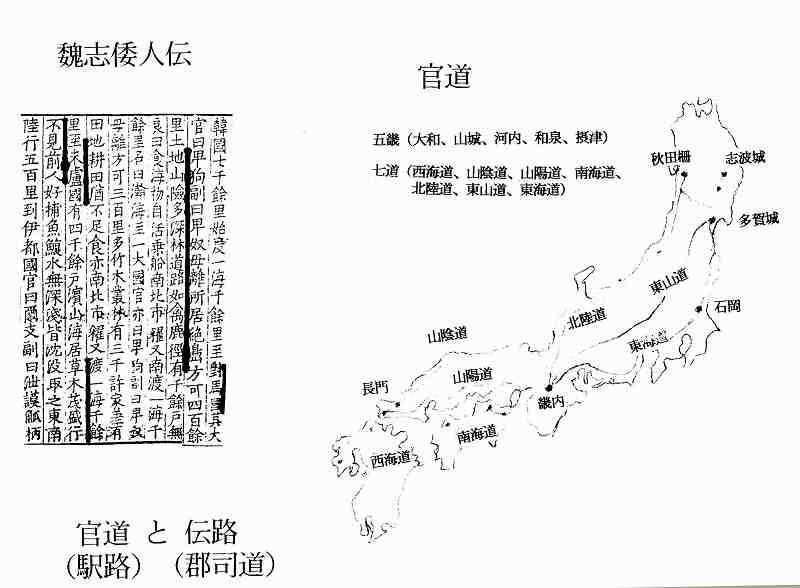 魏志倭人伝
韓國七千餘里始度一海千餘里至對馬國其大
官曰卑狗副曰卑奴母離所居絶島方可四百餘
里土地山險多深林道路如禽鹿徑有千餘戸無
良田食海物自活乗船南北市糴又南渡一海千
餘里名曰瀚海至一大國官亦曰卑狗副曰卑奴
母離方可三百里多竹木叢林有三千許家差有
田地耕田猶不足食亦南北市糴又渡一海千餘
里至末盧國有四千餘戸濱山海居草木茂盛行
不見前人好捕魚鰒水無深淺皆沈没取之東南
陸行五百里到伊都國官曰爾支副曰泄謨觚柄
官道 と 伝路
(駅路) (郡司道)
官道
五畿（大和、山城、河内、和泉、摂津）
七道（西海道、山陰道、山陽道、南海道、
北陸道、東山道、東海道）
秋田柵
志波城
多賀城
東山道
石岡
北陸道
東海道
山陰道
山陽道
長門
畿内
南海道
西海道